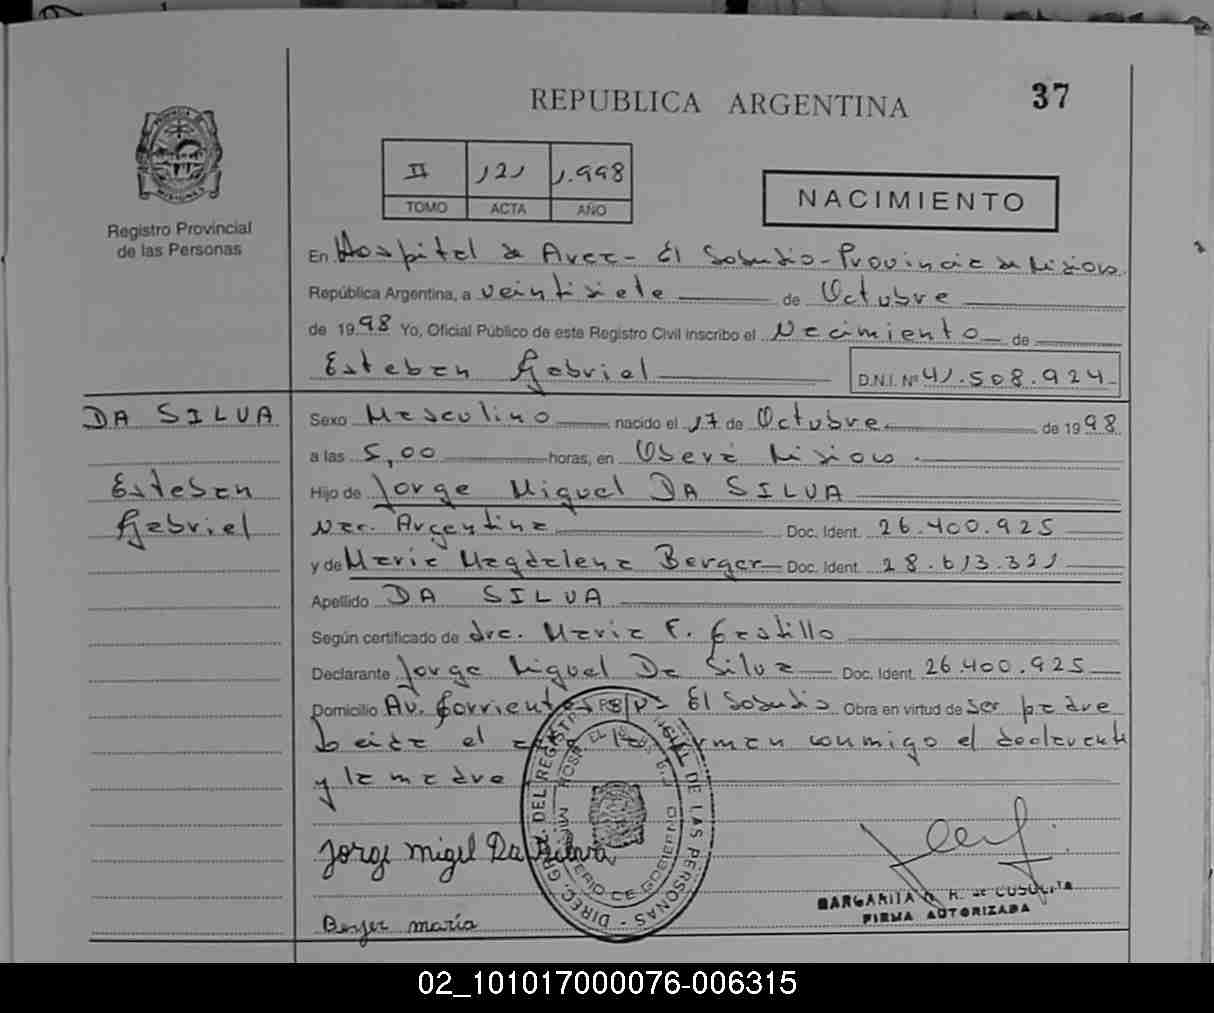 REPUBLICA ARGENTINA
37
II 121 1.998
TOMO ACTA AÑO
NACIMIENTO
Registro Provincial
de las Personas
En Hospital de Area - El Soberbio - Provincia de Misiones
República Argentina, a veintisiete de Octubre
de 1998 Yo, Oficial Público de este Registro Civil inscribo el Nacimiento de
Esteban Gabriel D.N.I. Nº 41.508.924
DA SILVA
Esteban
Gabriel
Sexo Masculino nacido el 17 de Octubre de 1998
a las 5,00 horas, en Oberá Misiones
Hijo de Jorge Miguel DA SILVA
Nac. Argentina Doc. Ident. 26.400.925
y de Maria Magdalena Berger Doc. Ident. 28.613.321
Apellido DA SILVA
Según certificado de dra. Maria F. Castillo
Declarante Jorge Miguel Da Silva Doc. Ident. 26.400.925
Domicilio Av. Corrientes El Soberbio Obra en virtud de ser padre
Leida el acta la firman conmigo el declarante
y la madre
Jorge migel Da Silva
Berjer maría
DIREC. GRAL. DEL REGISTRO PROVINCIAL DE LAS PERSONAS
MINISTERIO DE GOBIERNO
MARGARITA R. de
FIRMA AUTORIZADA
02_101017000076-006315